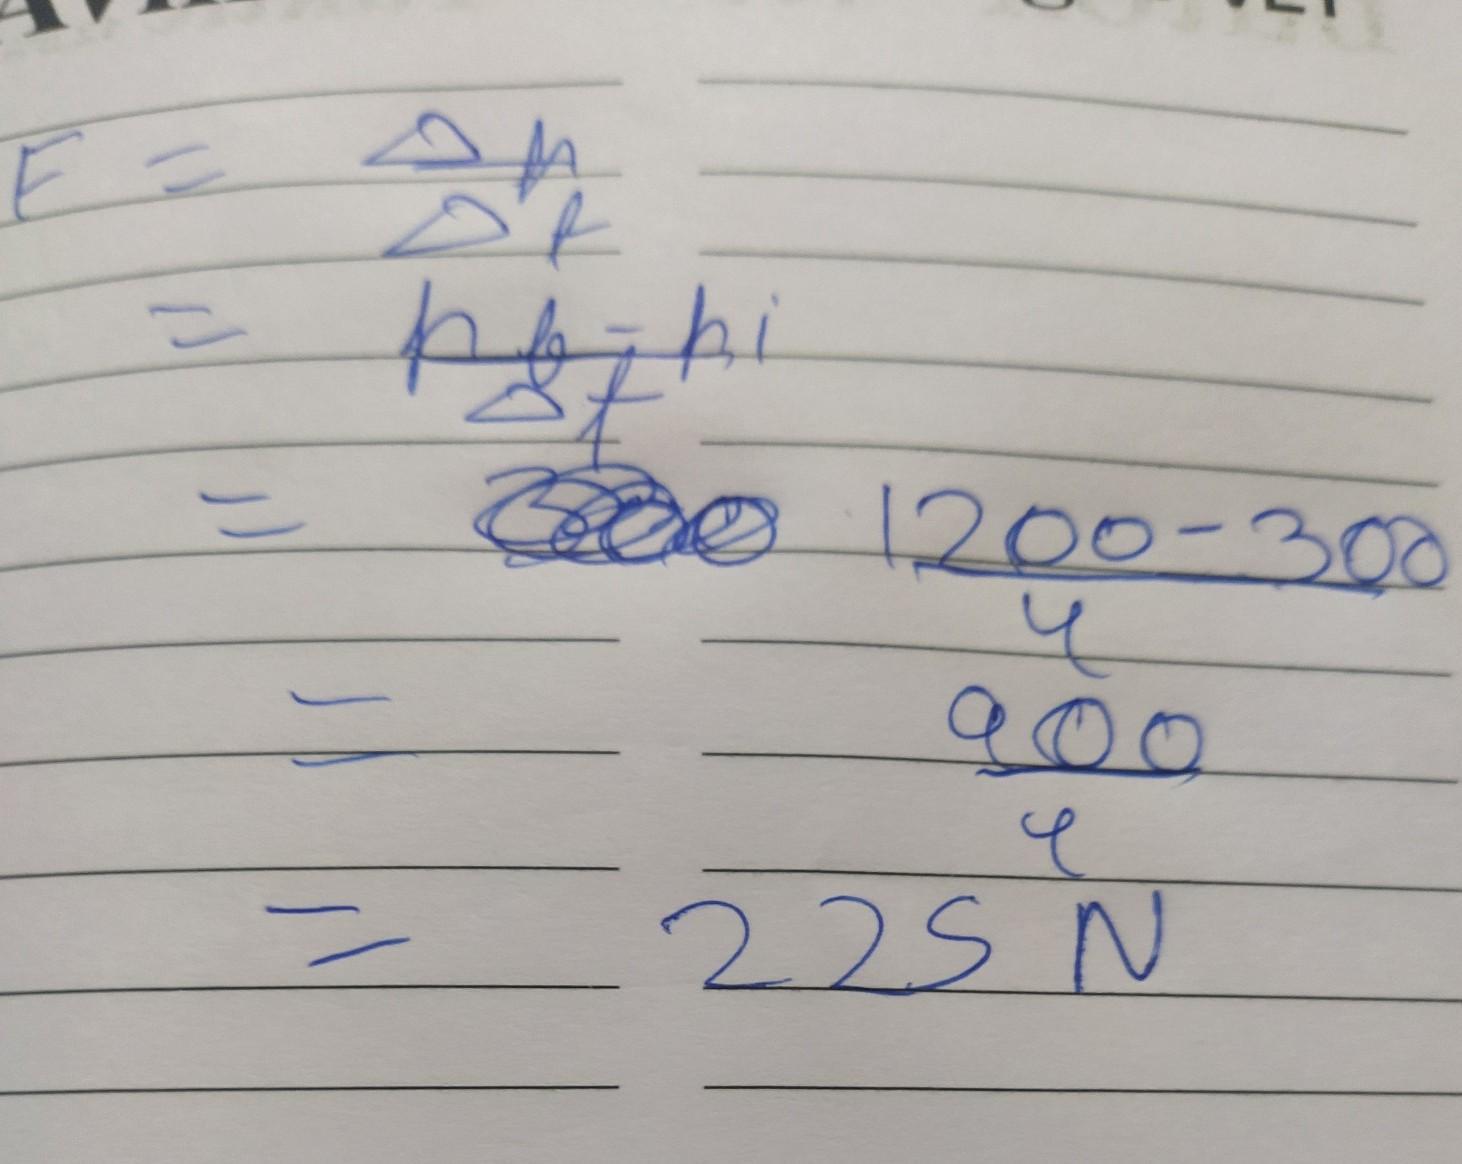 F = Δp
Δt
= pf - pi
Δt
= 1200 - 300
4
= 900
4
= 225 N